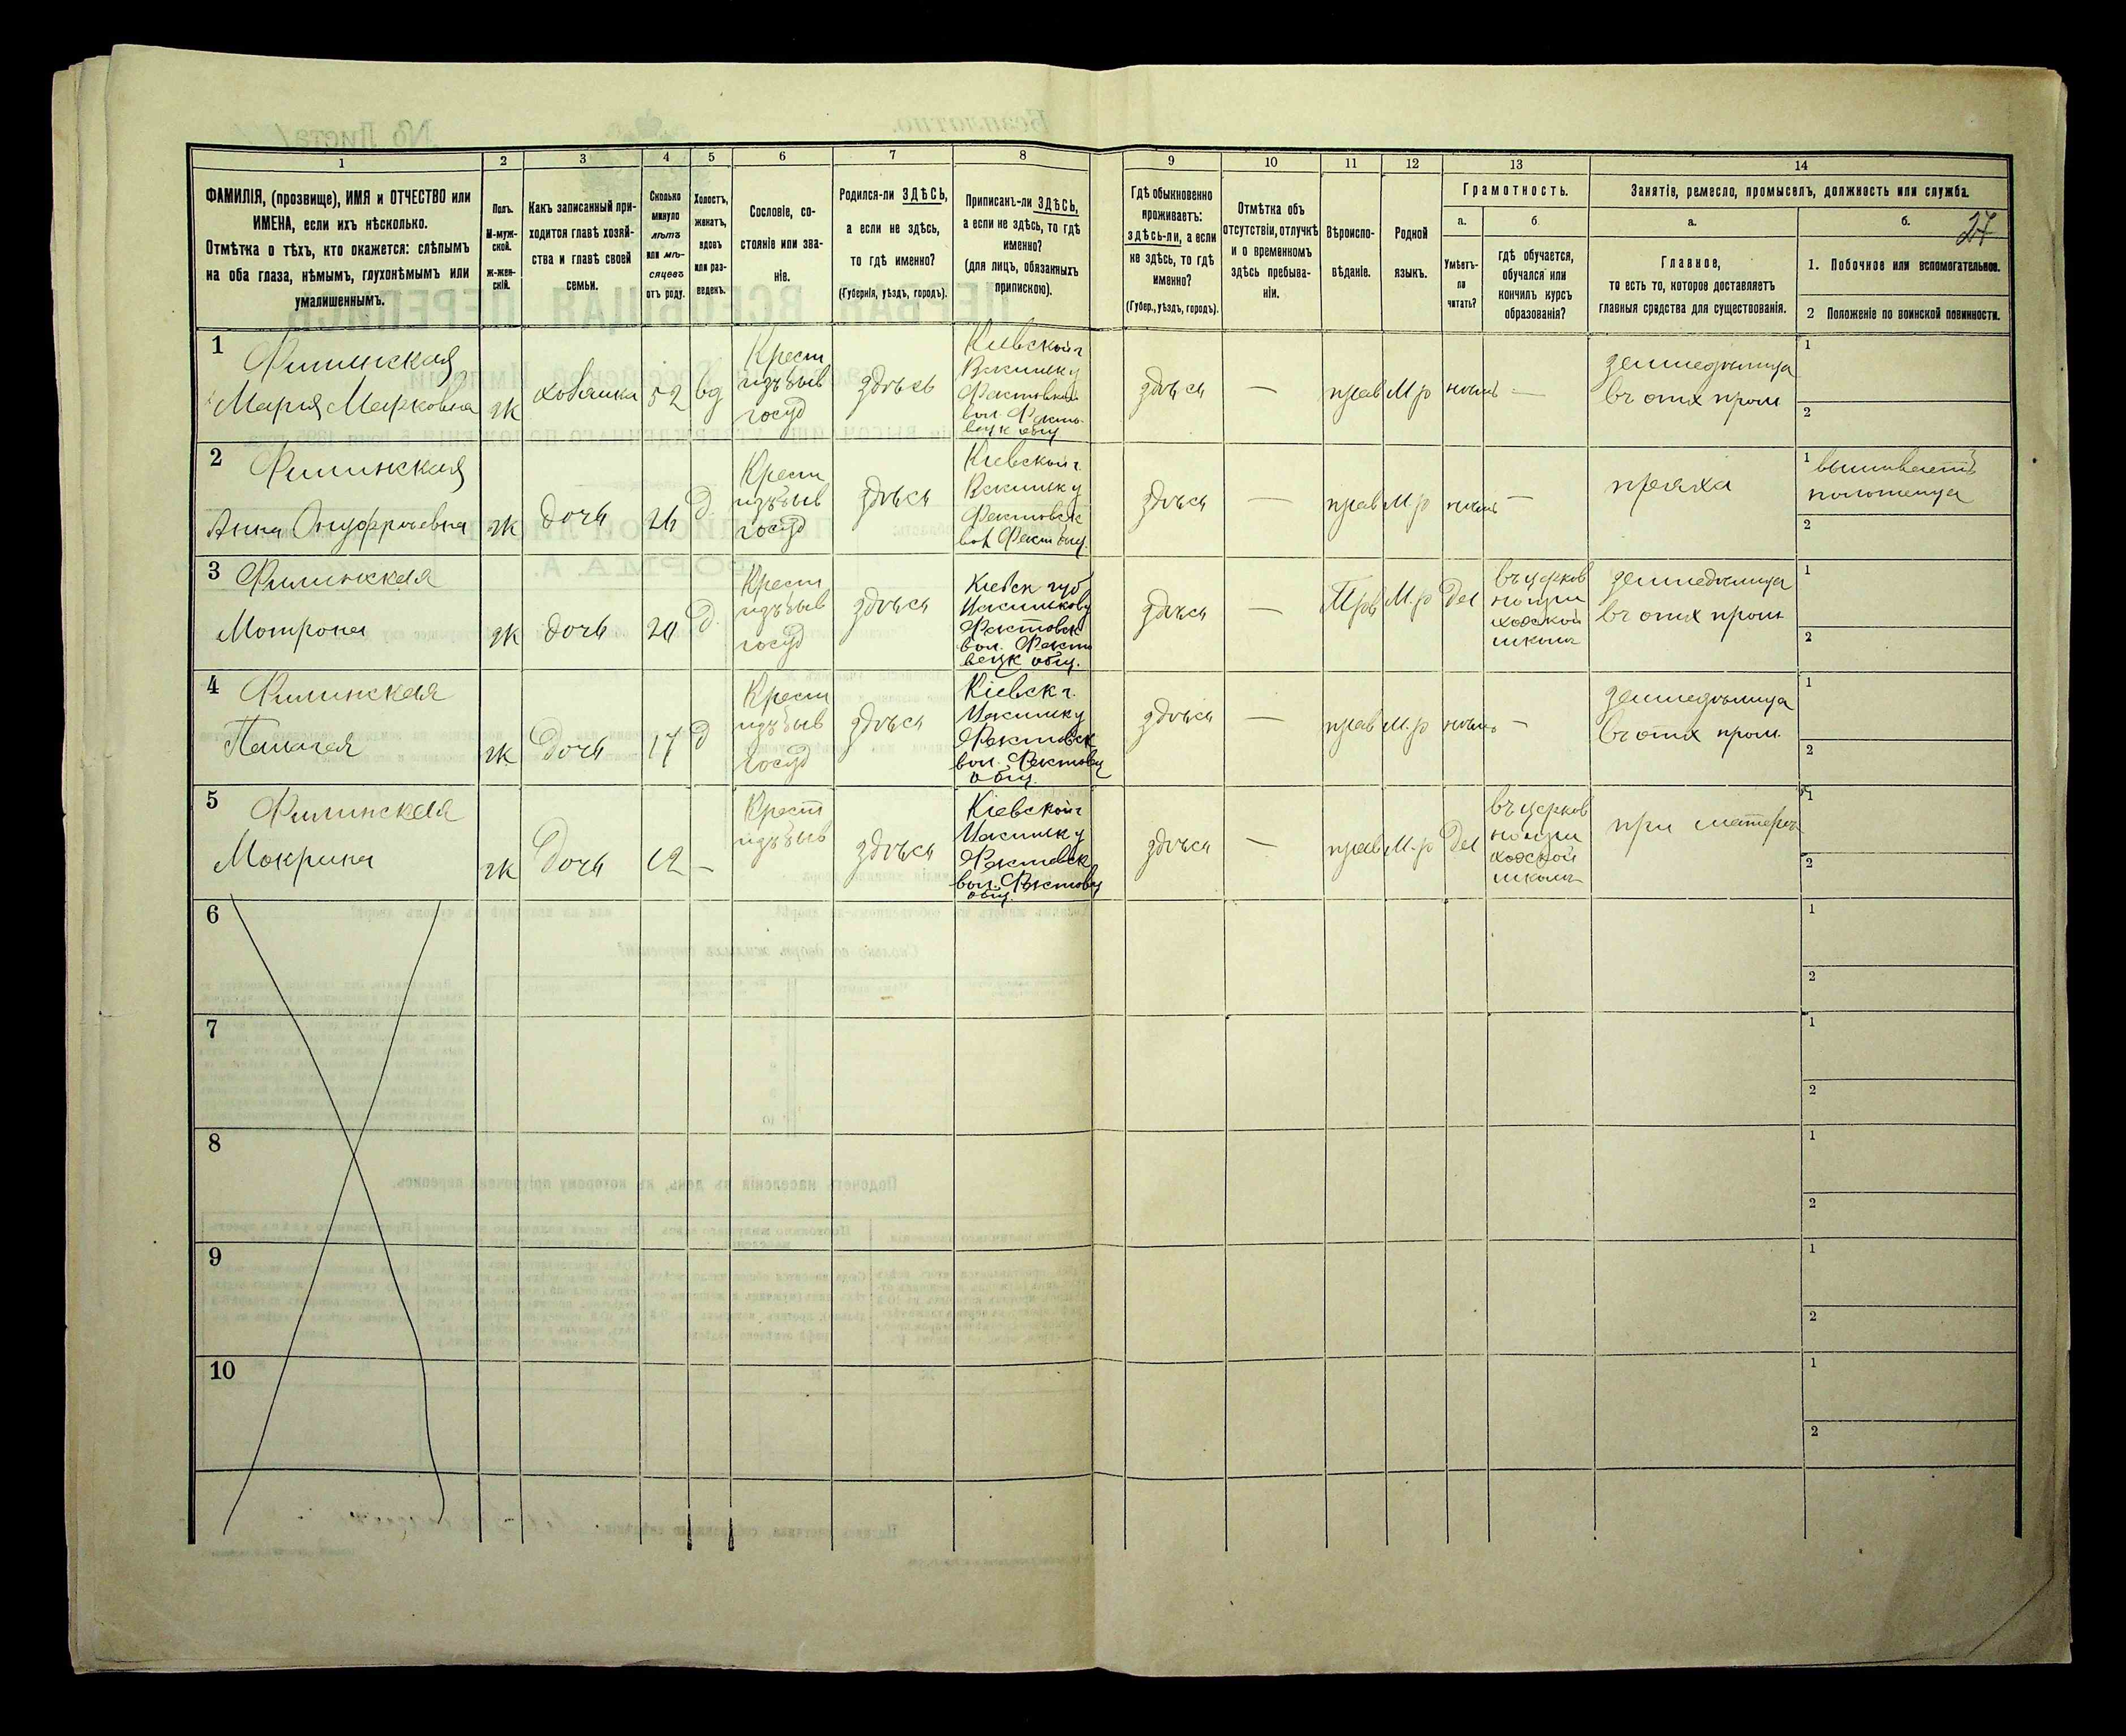 1 2 3 4 5 6 7 8 9 10 11 12 13 14
ФАМИЛІЯ, (прозвище), ИМЯ и ОТЧЕСТВО или
ИМЕНА, если ихъ нѣсколько.
Отмѣтка о тѣхъ, кто окажется: слѣпымъ
на оба глаза, нѣмымъ, глухонѣмымъ или
умалишеннымъ.
Полъ.
М-муж-
ской.
Ж-жен-
скій.
Какъ записанный при-
ходится главѣ хозяй-
ства и главѣ своей
семьи.
Сколько
минуло
лѣтъ
или мѣ-
сяцевъ
отъ роду.
Холостъ,
женатъ,
вдовъ
или раз-
веденъ.
Сословіе, со-
стояніе или зва-
ніе.
Родился-ли ЗДѢСЬ,
а если не здѣсь,
то гдѣ именно?
(Губернія, уѣздъ, городъ).
Приписанъ-ли ЗДѢСЬ,
а если не здѣсь, то гдѣ
именно?
(для лицъ, обязанныхъ
припискою).
Гдѣ обыкновенно
проживаетъ:
здѣсь-ли, а если
не здѣсь, то гдѣ
именно?
(Губер., уѣздъ, городъ).
Отмѣтка объ
отсутствіи, отлучкѣ
и о временномъ
здѣсь пребыва-
ніи.
Вѣроиспо-
вѣданіе.
Родной
языкъ.
Грамотность.
а.
Умѣетъ-
ли
читать?
б
гдѣ обучается,
обучался или
кончилъ курсъ
образованія?
Занятіе, ремесло, промыселъ, должность или служба.
а.
Главное,
то есть то, которое доставляетъ
главныя средства для существованія.
б.
27
1. Побочное или вспомогательное.
2 Положеніе по воинской повинности.
1
Филинская
Марія Марковна
ж
хозяйка
52
вд
Крест
изъ быв
госуд
здѣсь
Кіевской г
Фастовец
вол.
здѣсь
—
прав
М р
нѣтъ
—
земледѣлица
1
2
2
Филинская
Анна Онуфріевна
ж
дочь
26
д
Крест
изъ быв
госуд
здѣсь
Кіевской г.
вол Фаст общ.
здѣсь
—
прав
М. р
нѣтъ
—
пряха
1 вышиваетъ
полотенца
2
3
Филинская
Мотрона
ж
дочь
20
д.
Крест
изъ быв
госуд
здѣсь
Кіевск губ
Фастовск
вол. Фасто
вецк общ.
здѣсь
—
Прав
М. р
Да
въ церков
но при
ходской
школѣ
земледѣлица
1
2
4
Филинская
Пелагея
ж
Дочь
17
д
Крест
изъ быв
госуд
здѣсь
Кіевск г.
Фастовск
вол. Фастовец
общ.
здѣсь
—
прав
М. р
нѣтъ
—
земледѣлица
1
2
5
Филинская
Макрина
ж
Дочь
12
—
Крест
изъ быв
здѣсь
Кіевской г
Фастовск
вол. Фастовец
общ.
здѣсь
—
прав
М. р
Да
въ церков
но при
ходской
школѣ
при матери
1
2
6
1
2
7
1
2
8
1
2
9
1
2
10
1
2